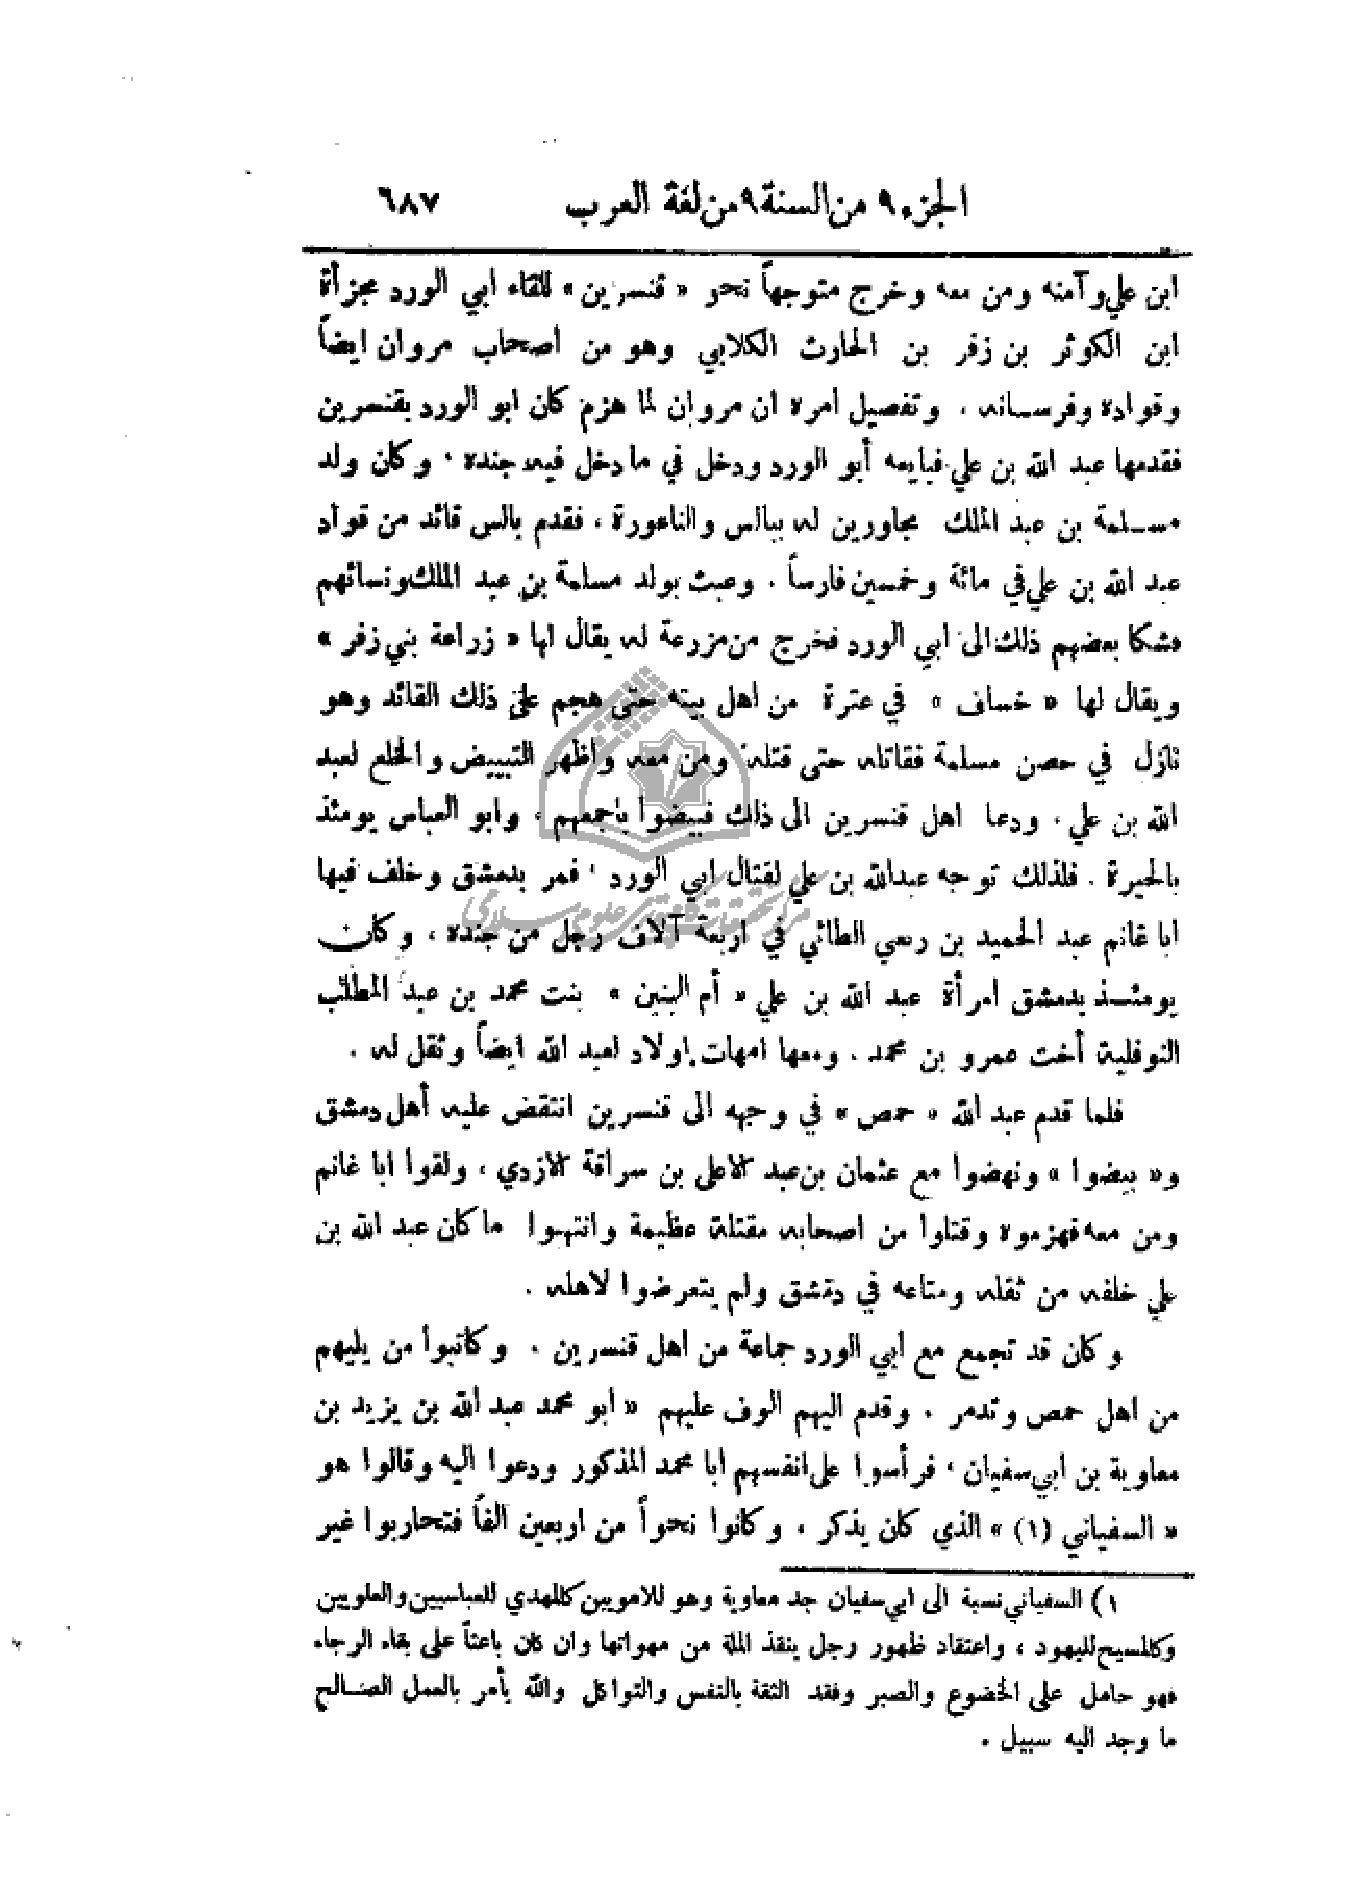 الجزء ٩ من السنة ٩ من لغة العرب ٦٨٧
ابن علي وآمنه ومن معه وخرج متوجهاً نحو « قنسرين » للقاء ابي الورد مجزأة
ابن الكوثر بن زفر بن الحارث الكلابي وهو من اصحاب مروان ايضاً
وقواده وفرسانه . وتفصيل امره ان مروان لما هزم كان ابو الورد بقنسرين
فقدمها عبد الله بن علي فبايعه أبو الورد ودخل في ما دخل فيه جنده . وكان ولد
مسلمة بن عبد الملك مجاورين له ببالس والناعورة ، فقدم بالس قائد من قواد
عبد الله بن علي في مائة وخمسين فارساً . وعبث بولد مسلمة بن عبد الملك ونسائهم
فشكا بعضهم ذلك الى ابي الورد فخرج من مزرعة له يقال لها « زراعة بني زفر »
ويقال لها « خساف » في عترة من اهل بيته حتى هجم على ذلك القائد وهو
نازل في حصن مسلمة فقاتله حتى قتله ومن معه واظهر التبييض والخلع لعبد
الله بن علي . ودعا اهل قنسرين الى ذلك فبيضوا باجمعهم ، وابو العباس يومئذ
بالحيرة . فلذلك توجه عبدالله بن علي لقتال ابي الورد ، فمر بدمشق وخلف فيها
ابا غانم عبد الحميد بن ربعي الطائي في اربعة آلاف رجل من جنده ، وكان
يومئذ بدمشق امرأة عبد الله بن علي « أم البنين » بنت محمد بن عبد المطلب
النوفلية أخت عمرو بن محمد . ومعها امهات اولاد لعبد الله ايضاً وثقل له .
فلما قدم عبد الله « حمص » في وجهه الى قنسرين انتقض عليه أهل دمشق
و« بيضوا » ونهضوا مع عثمان بن عبد الاعلى بن سراقة الازدي ، ولقوا ابا غانم
ومن معه فهزموه وقتلوا من اصحابه مقتلة عظيمة وانتهبوا ما كان عبد الله بن
علي خلفه من ثقله ومتاعه في دمشق ولم يتعرضوا لاهله .
وكان قد تجمع مع أبي الورد جماعة من اهل قنسرين . وكاتبوا من يليهم
من اهل حمص وتدمر . وقدم اليهم الوف عليهم « ابو محمد عبد الله بن يزيد بن
معاوية بن ابي سفيان ، فرأسوا على انفسهم ابا محمد المذكور ودعوا اليه وقالوا هو
« السفياني (١) » الذي كان يذكر ، وكانوا نحواً من اربعين الفاً فتحاربوا غير
١) السفياني نسبة الى ابي سفيان جد معاوية وهو للامويين كالمهدي للعباسيين والعلويين
وكالمسيح لليهود ، واعتقاد ظهور رجل ينقذ الملة من مهواتها وان كان باعثاً على بقاء الرجاء
فهو حامل على الخضوع والصبر وفقد الثقة بالنفس والتواكل والله يأمر بالعمل الصالح
ما وجد اليه سبيل .